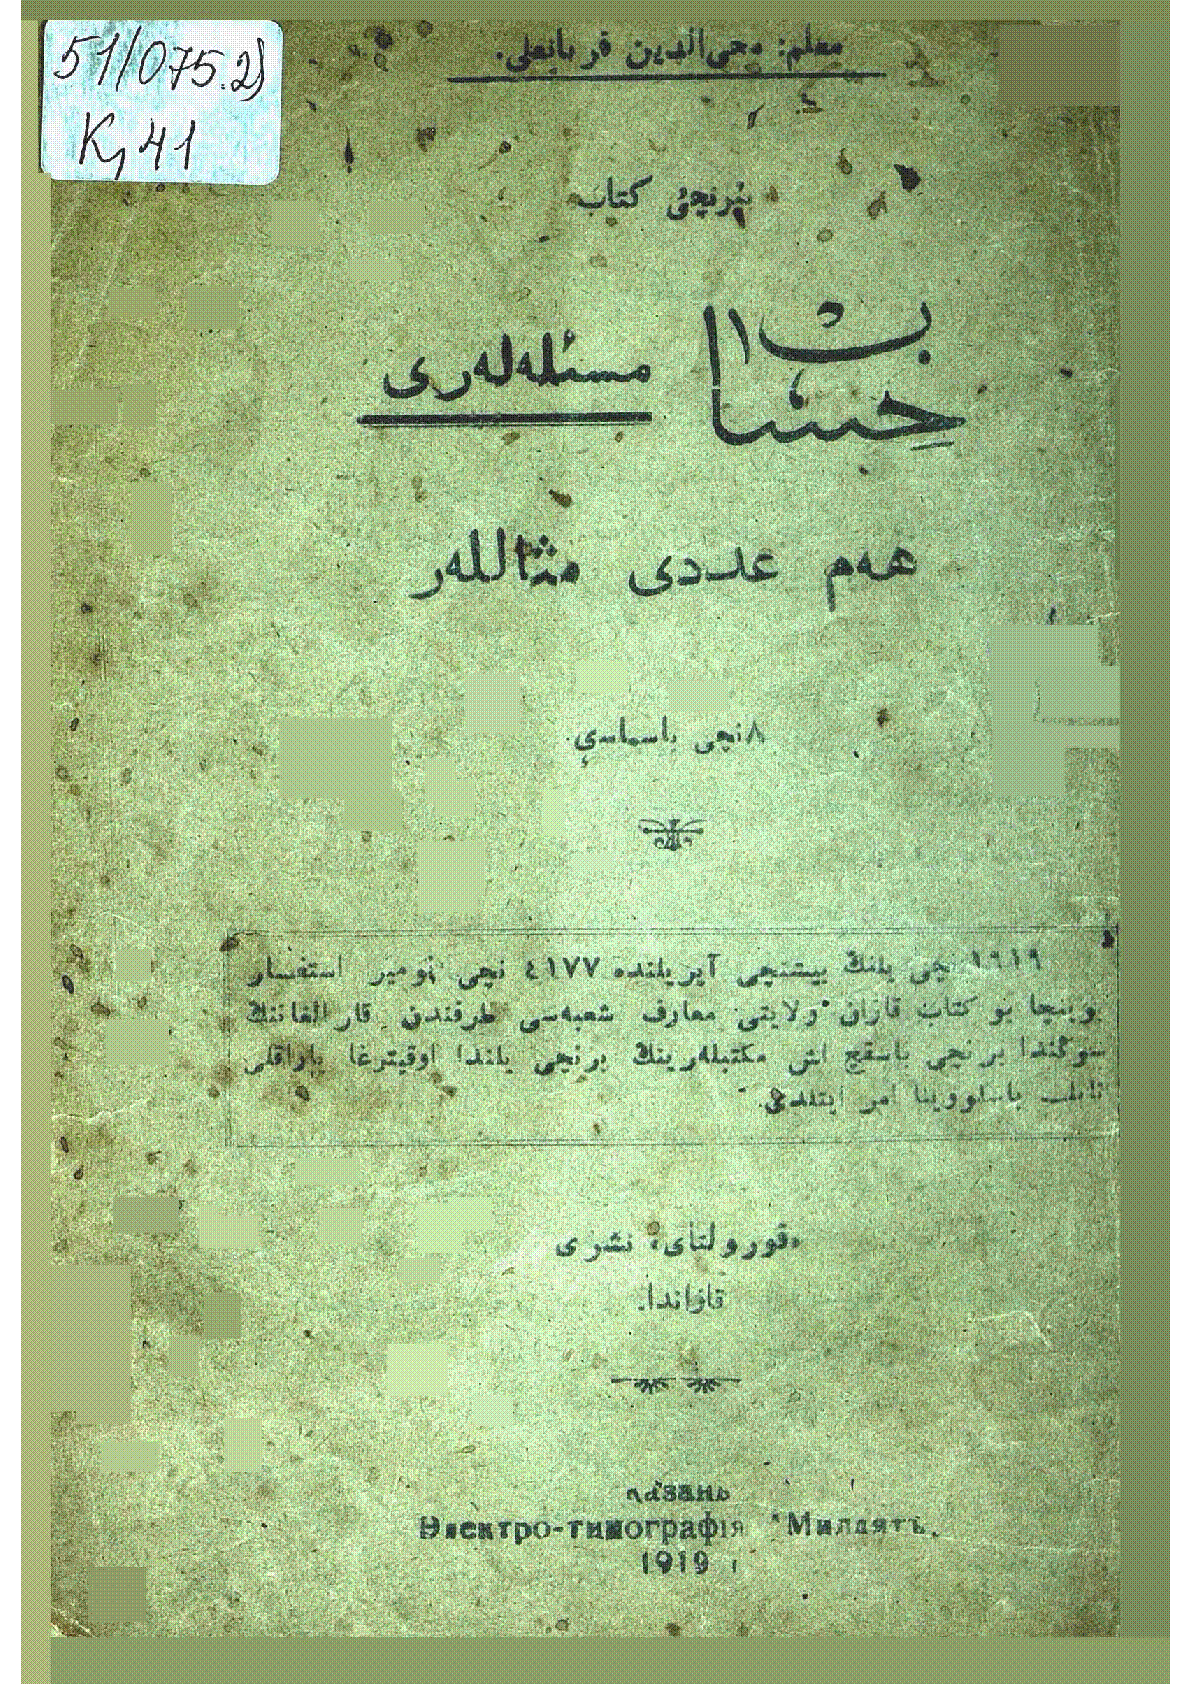 51/075.2)
Қ 41
معلم: محی‌الدین قربانعلی.
برنچی کتاب
حساب مسئله‌لەری
هەم عددی مثاللەر
٨نچی باسماسی.
١٩١٩ نچی یلنڭ بیشنچی آپریلندە ٤١٧٧ نچی نومیر استفسار
بوینچا بو کتاب قازان ولایتی معارف شعبەسی طرفندن قارالغاننڭ
سوڭندا برنچی باسقچ اش مکتبلەرینڭ برنچی یلندا اوقیترغا یاراقلی
تابلب باسلووینا امر ایتلدی.
«قورولتای» نشری
قازاندا.
Казань
Электро-типографія "Миллятъ"
1919 г